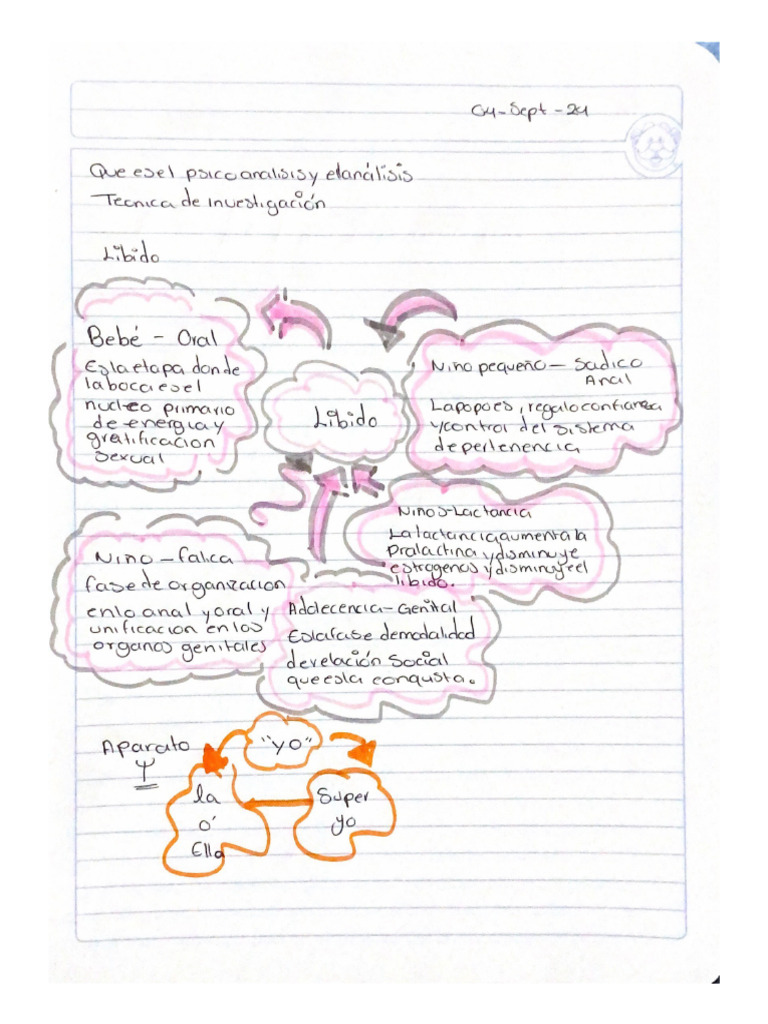 04-Sept-24
Que es el psicoanalisis y el análisis
Tecnica de investigación
Libido
Bebé - Oral
Es la etapa donde
la boca es el
nucleo primario
de energia y
gratificacion
sexual
Libido
Niño pequeño - Sadico
Anal
La popo es, regalo confianza
y control del sistema
de pertenencia
Niños-Lactancia
La lactancia aumenta la
Prolactina y disminuye
estrogenos y disminuye el
libido.
Niño - falica
fase de organizacion
en lo anal y oral y
unificacion en los
organos genitales
Adolecencia-Genital
Es la fase de modalidad
de relación social
que es la conquista.
Aparato
Ψ
"yo"
la
o'
Ella
Super
yo